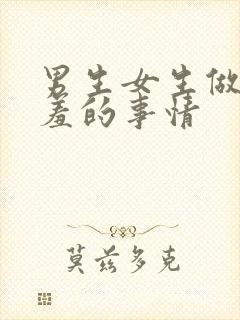 男生女生做
羞的事情
莫兹多克